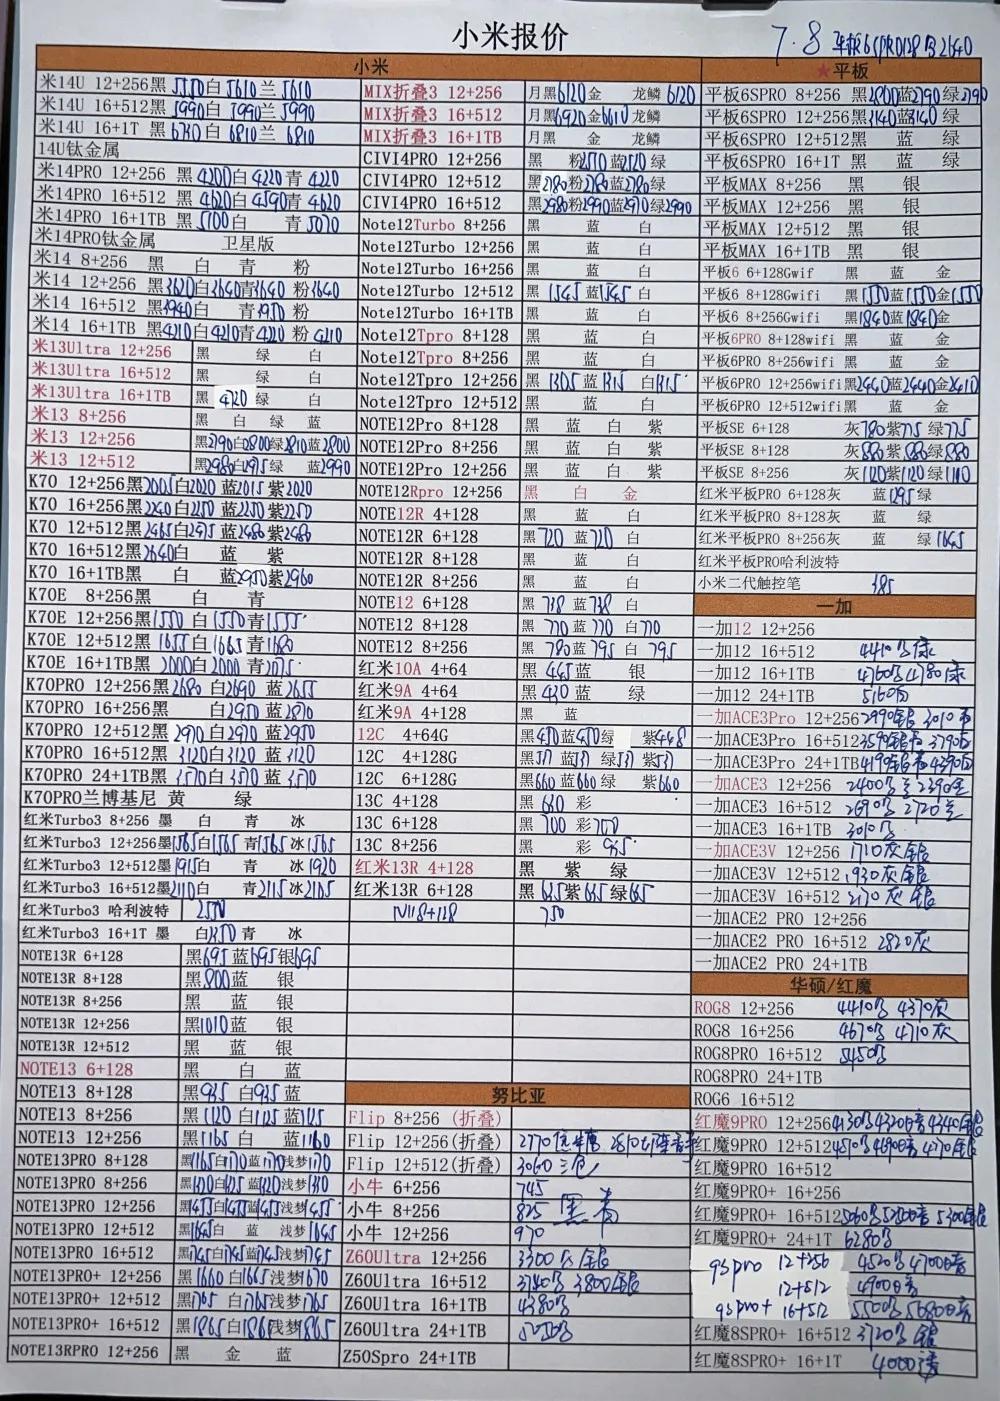 小米报价
7.8 平板6SPRO128白2640
小米
米14U 12+256黑5550白5610兰5610
米14U 16+512黑5990白5990兰5990
米14U 16+1T 黑6730白6810兰6810
14U钛金属
米14PRO 12+256 黑4200白4220青4220
米14PRO 16+512 黑4620白4590青4620
米14PRO 16+1TB 黑5100白 青5070
米14PRO钛金属 卫星版
米14 8+256 黑 白 青 粉
米14 12+256 黑3620白3640青3640粉3640
米14 16+512 黑3940白 青3950粉
米14 16+1TB 黑4210白4210青4220粉4210
米13Ultra 12+256 黑 绿 白
米13Ultra 16+512 黑 绿 白
米13Ultra 16+1TB 黑4720绿 白
米13 8+256 黑 白 绿 蓝
米13 12+256 黑2790白2800绿2810蓝2800
米13 12+512 黑2980白2975绿 蓝2990
K70 12+256黑2005白2020蓝2015紫2020
K70 16+256黑2240白2250蓝2250紫2250
K70 12+512黑2465白2475蓝2480紫2480
K70 16+512黑2640白 蓝 紫
K70 16+1TB黑 白 蓝2950紫2960
K70E 8+256黑 白 青
K70E 12+256黑1550白1550青1555
K70E 12+512黑1655白1665青1680
K70E 16+1TB黑2000白2000青2075
K70PRO 12+256黑2680白2690蓝2655
K70PRO 16+256黑 白2950蓝2870
K70PRO 12+512黑2970白2970蓝2950
K70PRO 16+512黑3120白3120蓝3120
K70PRO 24+1TB黑3570白3570蓝3570
K70PRO兰博基尼 黄 绿
红米Turbo3 8+256 墨 白 青 冰
红米Turbo3 12+256墨1565白1565青1565冰1565
红米Turbo3 12+512墨1915白 青 冰1920
红米Turbo3 16+512墨2110白 青2115冰2105
红米Turbo3 哈利波特 2550
红米Turbo3 16+1T 墨 白2350青 冰
NOTE13R 6+128 黑695蓝695银695
NOTE13R 8+128 黑800蓝 银
NOTE13R 8+256 黑 蓝 银
NOTE13R 12+256 黑1010蓝 银
NOTE13R 12+512 黑 蓝 银
NOTE13 6+128 黑 白 蓝
NOTE13 8+128 黑935白935蓝
NOTE13 8+256 黑1120白1125蓝1125
NOTE13 12+256 黑1165白 蓝1160
NOTE13PRO 8+128 黑1165白1170蓝1170浅梦1170
NOTE13PRO 8+256 黑1320白1325蓝1320浅梦1310
NOTE13PRO 12+256 黑1455白1455蓝1455浅梦1455
NOTE13PRO 12+512 黑1645白 蓝 浅梦1645
NOTE13PRO 16+512 黑1745白1745蓝1745浅梦1745
NOTE13PRO+ 12+256 黑1660白1665浅梦1670
NOTE13PRO+ 12+512 黑1765白1765浅梦1765
NOTE13PRO+ 16+512 黑1865白1865浅梦1865
NOTE13RPRO 12+256 黑 金 蓝
MIX折叠3 12+256 月黑6120金 龙鳞6120
MIX折叠3 16+512 月黑6920金6610龙鳞
MIX折叠3 16+1TB 月黑 金 龙鳞
CIVI4PRO 12+256 黑 粉2510蓝2520绿
CIVI4PRO 12+512 黑2780粉2780蓝2780绿
CIVI4PRO 16+512 黑2980粉2990蓝2970绿2990
Note12Turbo 8+256 黑 蓝 白
Note12Turbo 12+256 黑 蓝 白
Note12Turbo 16+256 黑 蓝 白
Note12Turbo 12+512 黑1545蓝1545白
Note12Turbo 16+1TB 黑 蓝 白
Note12Tpro 8+128 黑 蓝 白
Note12Tpro 8+256 黑 蓝 白
Note12Tpro 12+256 黑1305蓝1315白1315
Note12Tpro 12+512 黑 蓝 白
NOTE12Pro 8+128 黑 蓝 白 紫
NOTE12Pro 8+256 黑 蓝 白 紫
NOTE12Pro 12+256 黑 蓝 白 紫
NOTE12Rpro 12+256 黑 白 金
NOTE12R 4+128 黑 蓝 白
NOTE12R 6+128 黑720蓝720白
NOTE12R 8+128 黑 蓝 白
NOTE12R 8+256 黑 蓝 白
NOTE12 6+128 黑738蓝738白
NOTE12 8+128 黑770蓝770白770
NOTE12 8+256 黑780蓝795白795
红米10A 4+64 黑445蓝 银
红米9A 4+64 黑430蓝 绿
红米9A 4+128 黑 蓝
12C 4+64G 黑450蓝450绿 紫448
12C 4+128G 黑531蓝531绿531紫531
12C 6+128G 黑660蓝660绿 紫660
13C 4+128 黑630彩
13C 6+128 黑700彩700
13C 8+256 黑 彩935
红米13R 4+128 黑 紫 绿
红米13R 6+128 黑635紫635绿665
N118+118 750
努比亚
Flip 8+256 (折叠)
Flip 12+256(折叠) 2770
Flip 12+512(折叠) 3060三色
小牛 6+256 745
小牛 8+256 825 黑 青
小牛 12+256 970
Z60Ultra 12+256 3300灰银
Z60Ultra 16+512 3740白3800银
Z60Ultra 16+1TB 4380白
Z60Ultra 24+1TB 5050白
Z50Spro 24+1TB
★平板
平板6SPRO 8+256 黑2800蓝2790绿2790
平板6SPRO 12+256黑3140蓝3140绿
平板6SPRO 12+512黑 蓝 绿
平板6SPRO 16+1T 黑 蓝 绿
平板MAX 8+256 黑 银
平板MAX 12+256 黑 银
平板MAX 12+512 黑 银
平板MAX 16+1TB 黑 银
平板6 6+128Gwif 黑 蓝 金
平板6 8+128Gwifi 黑1550蓝1550金1550
平板6 8+256Gwifi 黑1840蓝1840金
平板6PRO 8+128wifi 黑 蓝 金
平板6PRO 8+256wifi 黑 蓝 金
平板6PRO 12+256wifi黑2440蓝2440金2410
平板6PRO 12+512wifi黑 蓝 金
平板SE 6+128 灰780紫775绿775
平板SE 8+128 灰880紫880绿880
平板SE 8+256 灰1120紫1120绿1110
红米平板PRO 6+128灰 蓝1295绿
红米平板PRO 8+128灰 蓝 绿
红米平板PRO 8+256灰 蓝 绿1645
红米平板PRO哈利波特
小米二代触控笔 385
一加
一加12 12+256
一加12 16+512 4410白绿
一加12 16+1TB 4760白4780绿
一加12 24+1TB 5160白
一加ACE3Pro 12+256 2990银3010青
一加ACE3Pro 16+512 3590银青3790白
一加ACE3Pro 24+1TB 4190银青4390白
一加ACE3 12+256 2400兰2390金
一加ACE3 16+512 2690白2720兰
一加ACE3 16+1TB 3010白
一加ACE3V 12+256 1710灰银
一加ACE3V 12+512 1930灰银
一加ACE3V 16+512 2170灰银
一加ACE2 PRO 12+256
一加ACE2 PRO 16+512 2820灰
一加ACE2 PRO 24+1TB
华硕/红魔
ROG8 12+256 4410白4370灰
ROG8 16+256 4670白4710灰
ROG8PRO 16+512 5450白
ROG8PRO 24+1TB
ROG6 16+512
红魔9PRO 12+256 4130白4320白青4340银
红魔9PRO 12+512 4570白4690白青4770银
红魔9PRO 16+512
红魔9PRO+ 16+256
红魔9PRO+ 16+512 5060白5280白青5300银
红魔9PRO+ 24+1T 6280白
9spro 12+256 4520白4700白青
12+512 4900白青
9spro+ 16+512 5500白5680白青
红魔8SPRO+ 16+512 3720白银
红魔8SPRO+ 16+1T 4000透